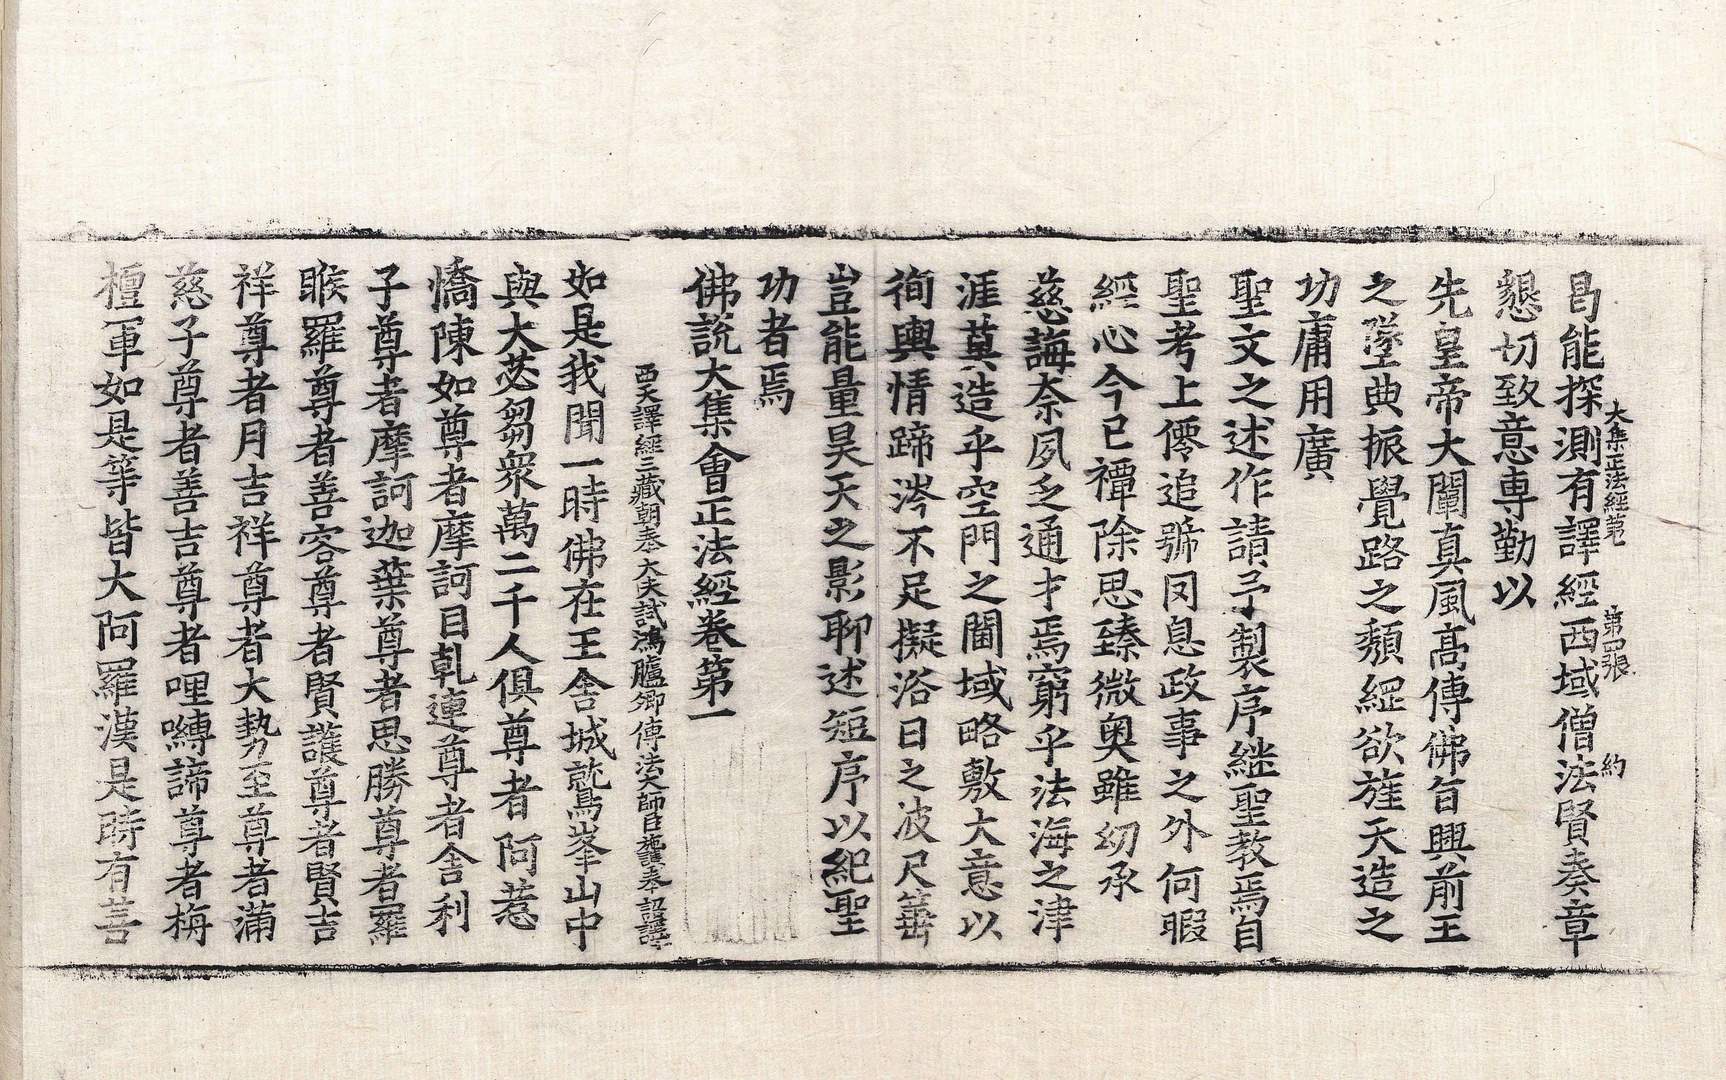 大集正法經第一　第四張　約
曷能探測有譯經西域僧法賢奏章
懇切致意專勤以
先皇帝大闡真風髙傳佛旨興前王
之墜典振覺路之頹綱欲旌天造之
功庸用廣
聖文之述作請予製序繼聖教焉自
聖考上僊追號罔息政事之外何暇
經心今已禫除思臻微奧雖幼承
慈誨柰夙乏通才焉窮乎法海之津
涯莫造乎空門之閫域略敷大意以
徇輿情蹄涔不足擬浴日之波尺箠
豈能量昊天之影聊述短序以紀聖
功者焉
佛說大集會正法經卷第一
西天譯經三藏朝奉大夫試鴻臚卿傳法大師臣施護奉 詔譯
如是我聞一時佛在王舍城鷲峯山中
與大苾芻衆萬二千人俱尊者阿惹
憍陳如尊者摩訶目乹連尊者舍利
子尊者摩訶迦葉尊者思勝尊者羅
睺羅尊者善容尊者賢護尊者賢吉
祥尊者月吉祥尊者大勢至尊者滿
慈子尊者善吉尊者哩嚩諦尊者梅
檀軍如是等皆大阿羅漢是時有菩